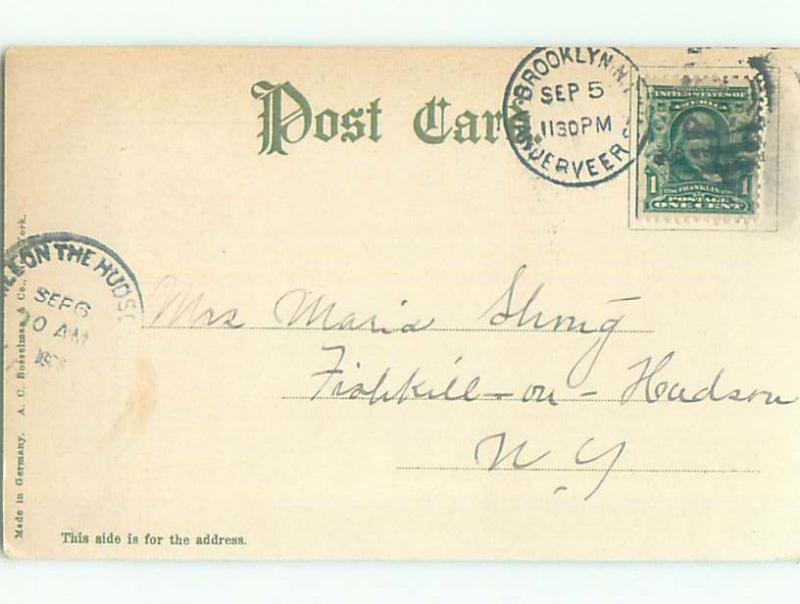 Post Card
BROOKLYN, N.Y.
SEP 5
1130PM
VANDERVEER
UNITED STATES OF
AMERICA
1 FRANKLIN 1
POSTAGE
ONE CENT
ON THE HUDSO
SEP 6
10 AM
Mrs Maria
Fishkill-on-Hudson
N Y
Made in Germany. A. C. Bosselman & Co., York.
This side is for the address.